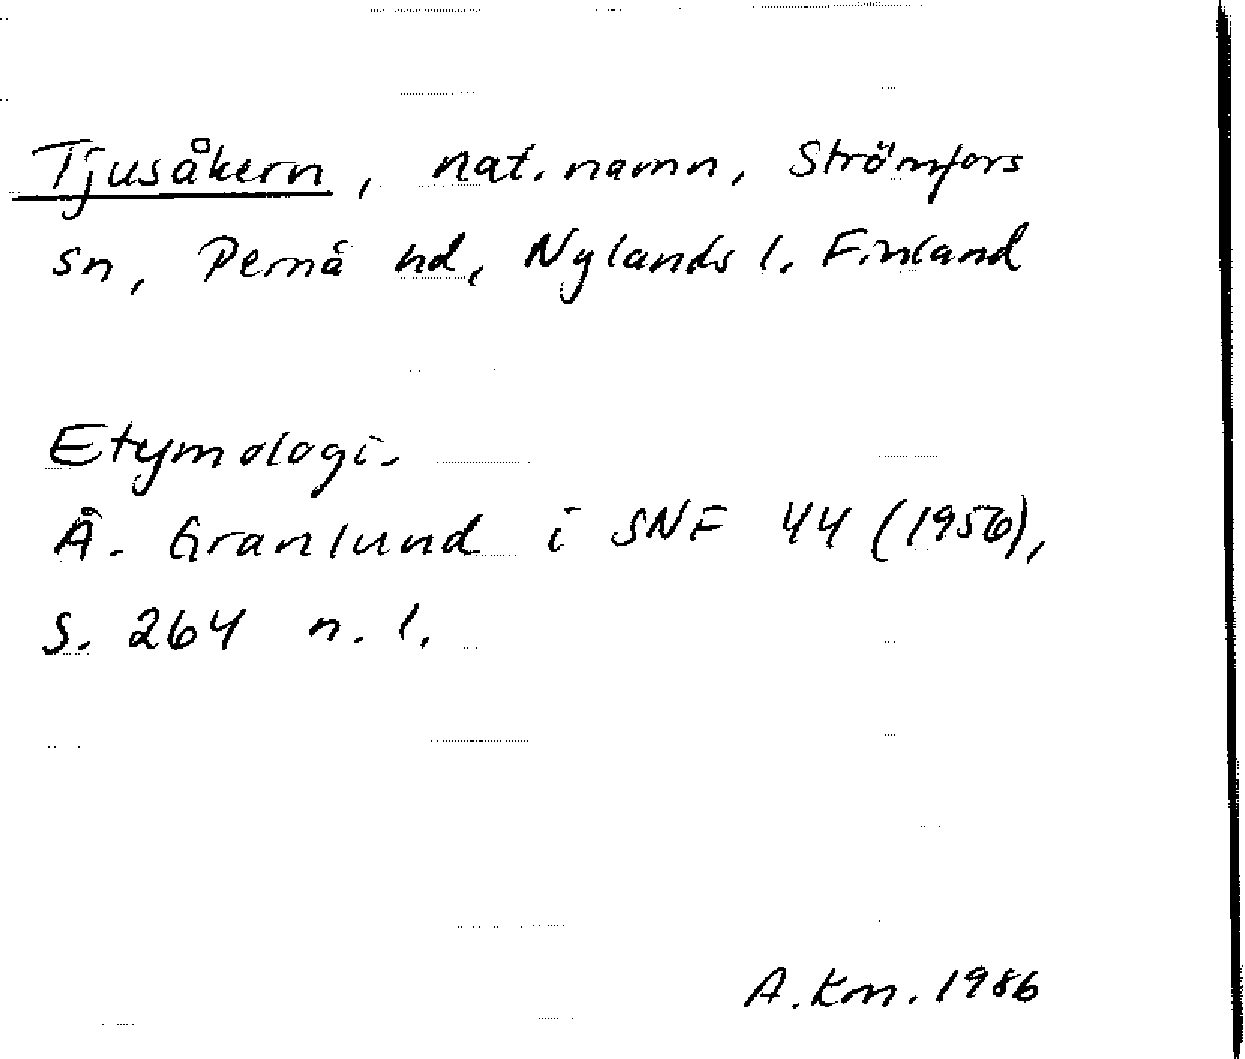 Tjusåkern, nat. namn, Strömfors
sn, Pernå hd, Nylands l. Finland
Etymologi.
Å. Granlund i SNF 44 (1956),
s. 264 n. l.
A. Km. 1986